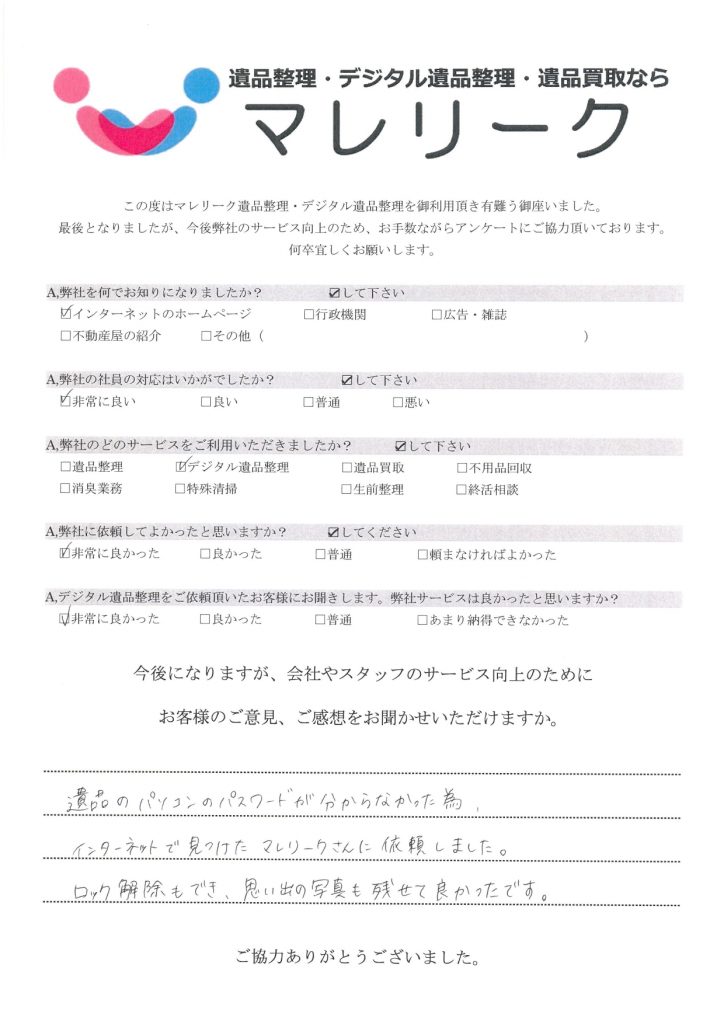 遺品整理・デジタル遺品整理・遺品買取なら
マレリーク
この度はマレリーク遺品整理・デジタル遺品整理を御利用頂き有難う御座いました。
最後となりましたが、今後弊社のサービス向上のため、お手数ながらアンケートにご協力頂いております。
何卒宜しくお願いします。
A,弊社を何でお知りになりましたか？ ☑して下さい
☑インターネットのホームページ □行政機関 □広告・雑誌
□不動産屋の紹介 □その他（ ）
A,弊社の社員の対応はいかがでしたか？ ☑して下さい
☑非常に良い □良い □普通 □悪い
A,弊社のどのサービスをご利用いただきましたか？ ☑して下さい
□遺品整理 ☑デジタル遺品整理 □遺品買取 □不用品回収
□消臭業務 □特殊清掃 □生前整理 □終活相談
A,弊社に依頼してよかったと思いますか？ ☑してください
☑非常に良かった □良かった □普通 □頼まなければよかった
A,デジタル遺品整理をご依頼頂いたお客様にお聞きします。弊社サービスは良かったと思いますか？
☑非常に良かった □良かった □普通 □あまり納得できなかった
今後になりますが、会社やスタッフのサービス向上のために
お客様のご意見、ご感想をお聞かせいただけますか。
遺品のパソコンのパスワードが分からなかった為、
インターネットで見つけたマレリークさんに依頼しました。
ロック解除もでき、思い出の写真も残せて良かったです。
ご協力ありがとうございました。